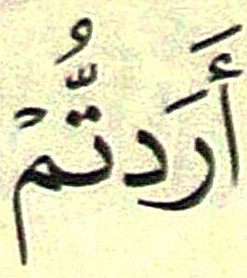 أَرَدتُّمْ